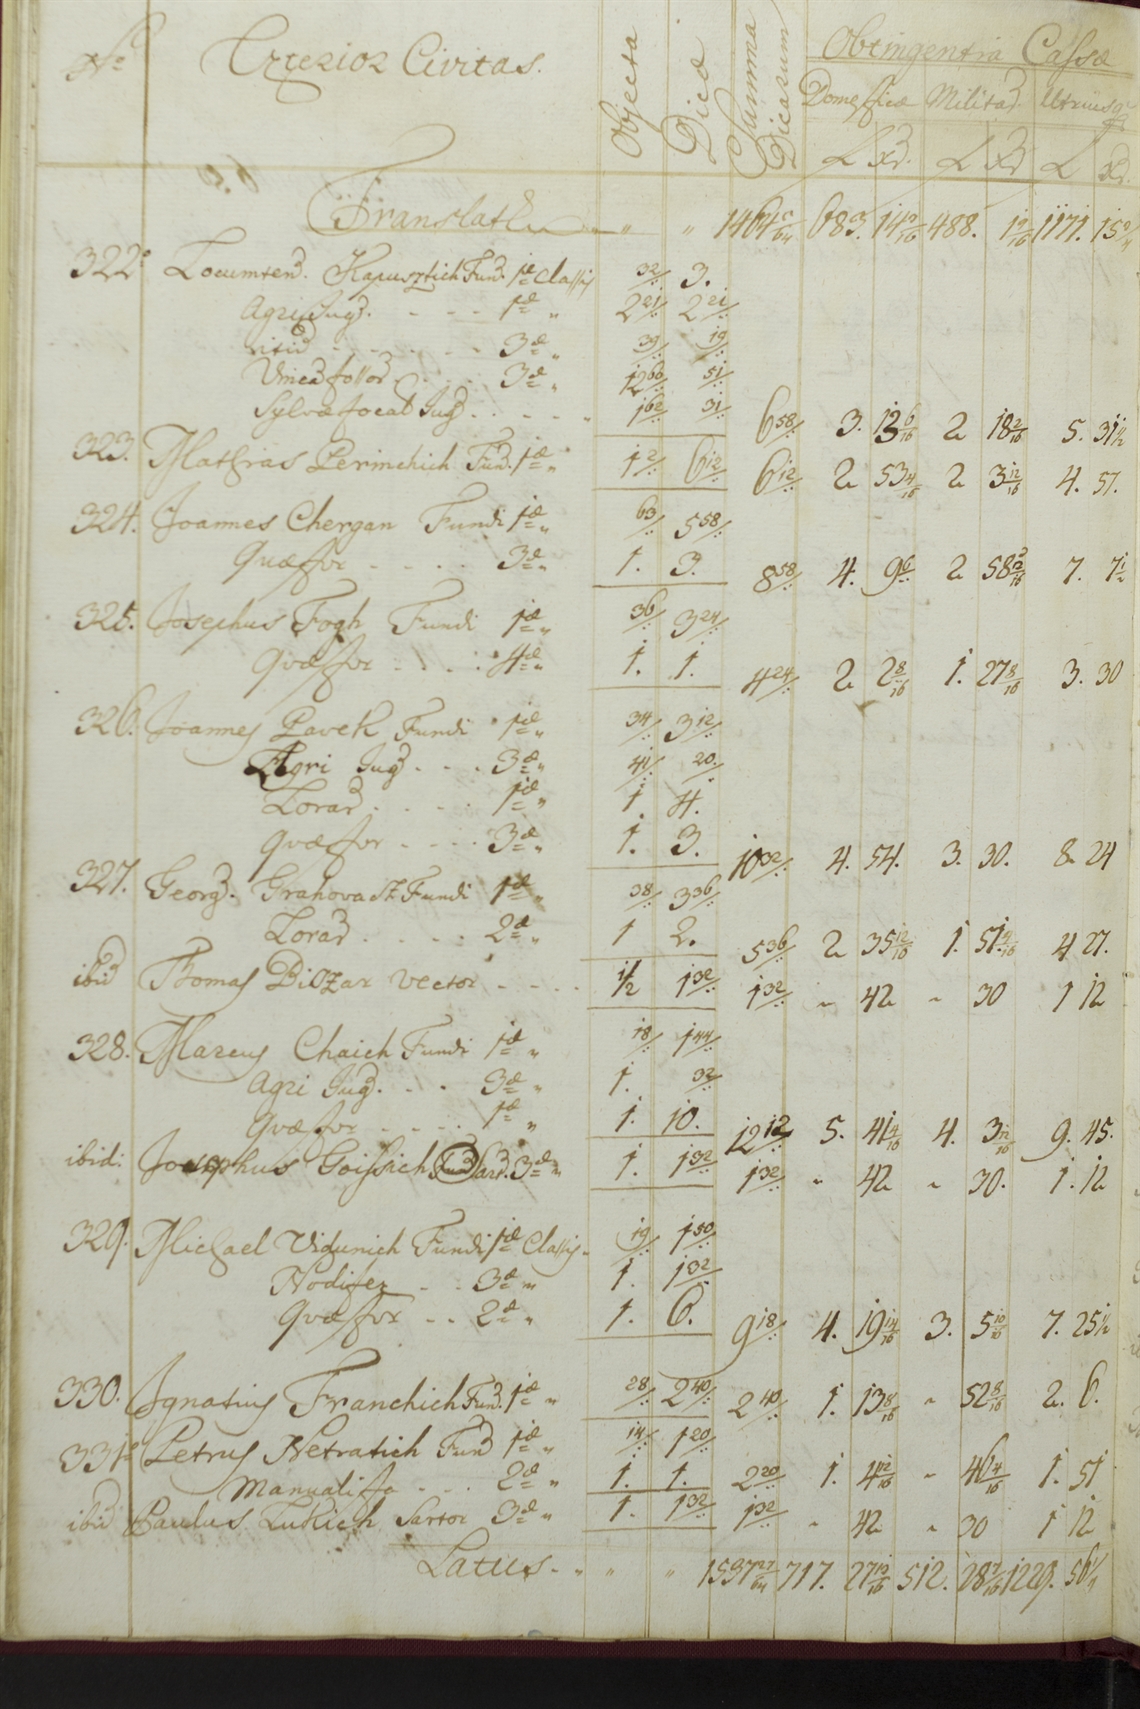 Nro Exterior Civitas. Objecta Dicæ Summa Dicarum Obtingentia Cassæ
Domesticæ Militar. Utriusq
f. xr. f. xr. f. xr.
Translatu " " 1464 683. 14 488. 1 1171. 15
322. Locumten. Kapusztich Fund. 1æ Classis 32 3.
Agri Jug. 1æ " 2 21 2 21
3æ " 39 19
3æ " 12 60 51
Sylvæ focal Jug. " 1 62 31 6 58 3. 13 6/16 2 18 2/16 5. 31 1/2
323. Mathias Perinchich Fund. 1æ " 1 2 6 12 6 12 2 53 4/16 2 3 12/16 4. 57.
324. Joannes Chergan Fundi 1æ " 63 5 58
Quæstor 3æ " 1. 3. 8 58 4. 9 6 2 58 7. 7 1
325. Josephus Fogh Fundi 1æ " 36 3 24
Quæstor 4æ " 1. 1. 4 24 2. 2 8/16 1. 27 8/16 3. 30
326. Joannes Pavek Fundi 1æ " 34 3 12
Agri Jug. 3æ " 41 20.
1æ " 1 4.
Quæstor 3æ " 1. 3. 10 32 4. 54. 3. 30. 8. 24
327. Georg. Grahovacz Fundi 1æ " 38 3 36
2æ " 1 2. 5 36 2 35 12/16 1. 51 4/16 4 27.
ibid Thomas Diozar vector 1/2 1 32 1 32 " 42 " 30 1 12
328. Marcus Chaich Fundi 1æ " 18 1 44
Agri Jug. 3æ " 1. 32
Quæstor 1æ " 1. 10. 12 12 5. 41 4/16 4. 3 12/16 9. 45.
ibid: Josephus Goissich Sart. 3æ " 1. 1 32 1 32 " 42 " 30. 1. 12
329. Michael Vidunich Fundi 1æ Classis 19 1 50
Nodifex 3æ " 1. 1 32
Quæstor 2æ " 1. 6. 9 18 4. 19 14/16 3. 5 10/16 7. 25 1/2
330. Ignatius Franchich Fund. 1æ " 28 2 40 2 40 1. 13 8/16 " 52 8/16 2. 6.
331. Petrus Netratich Fund 1æ " 14 1 20
Manualista 2æ " 1. 1. 2 20 1. 4 2/16 " 46 14/16 1. 51
ibid Paulus Lukich Sartor 3æ " 1. 1 32 1 32 " 42 " 30 1 12
Latus " " 1537 27/64 717. 27 512. 28 1229. 56